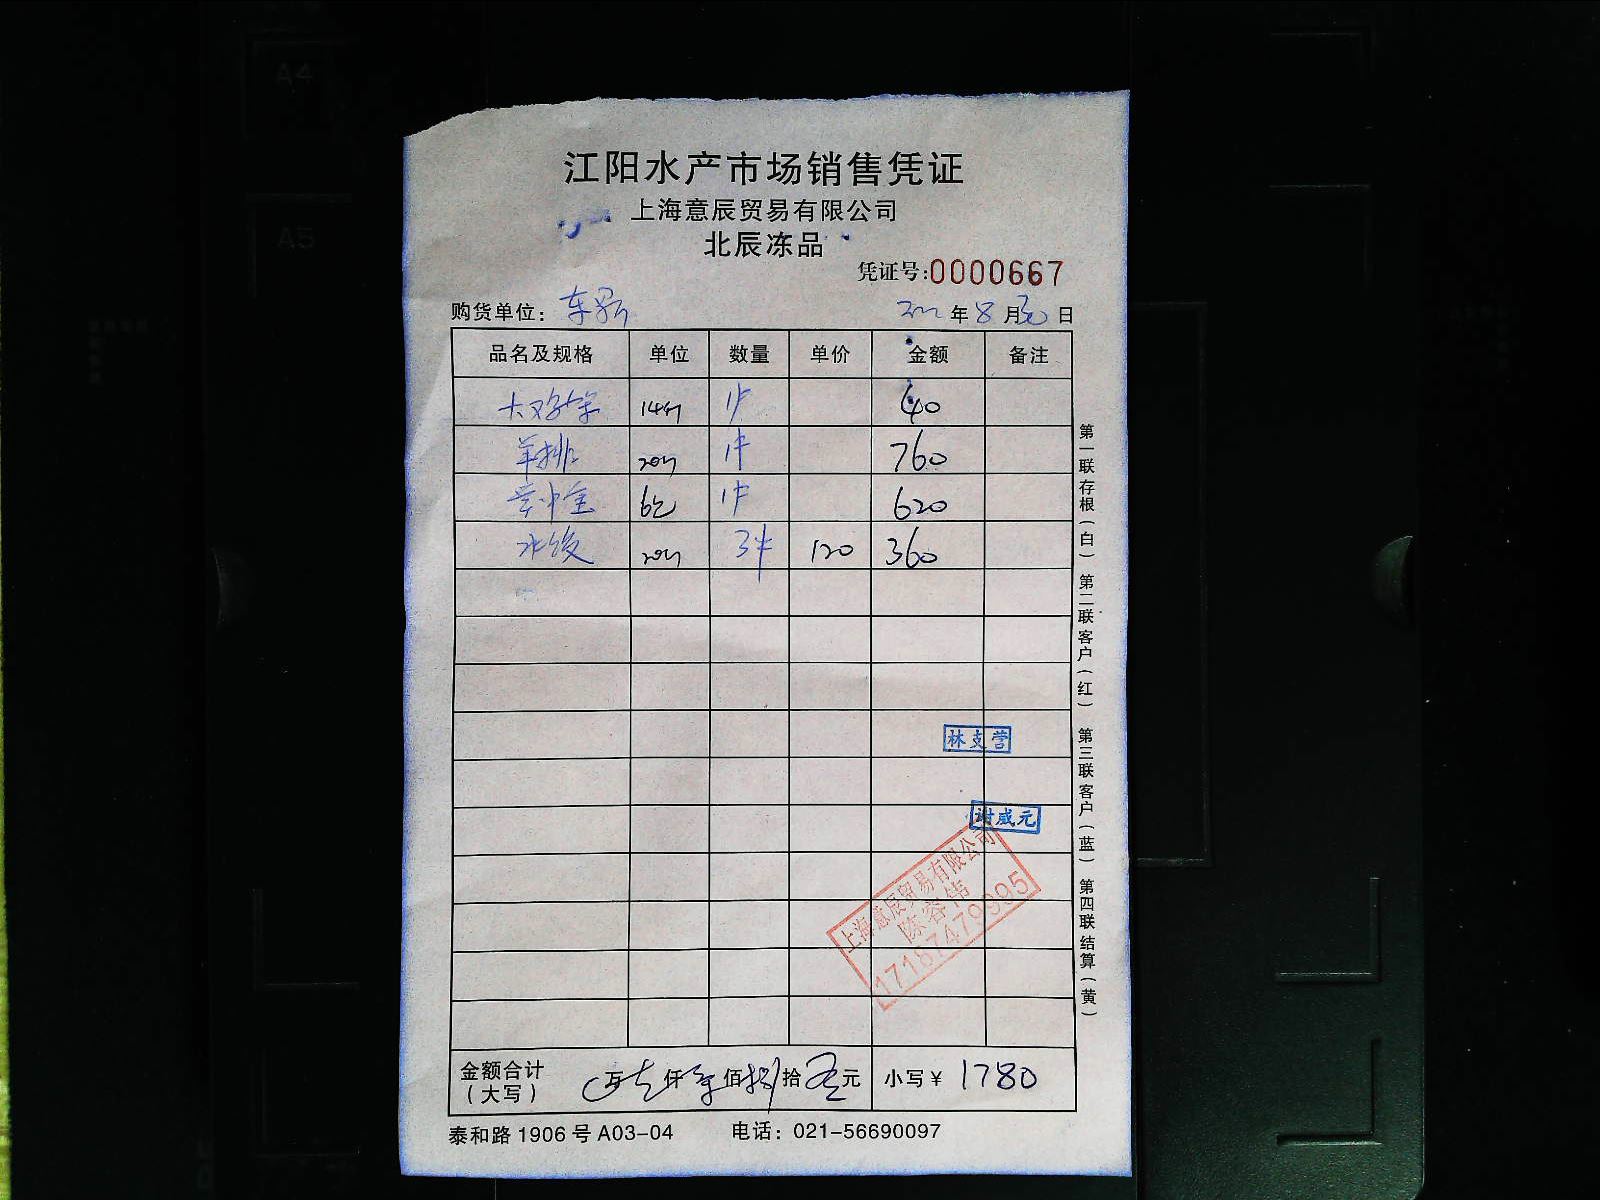 A4
A5
江阳水产市场销售凭证
上海意辰贸易有限公司
北辰冻品
凭证号:0000667
购货单位: 年8月 日
品名及规格 单位 数量 单价 金额 备注
大 1件 40
羊排 20斤 1件 760
6包 1件 620
20斤 3件 120 360
林支营
谢威元
上海意辰贸易有限公司
陈容伟
17187479995
金额合计 万 仟 佰 拾 元 小写¥ 1780
(大写)
泰和路1906号A03-04 电话: 021-56690097
第一联存根(白) 第二联客户(红) 第三联客户(蓝) 第四联结算(黄)